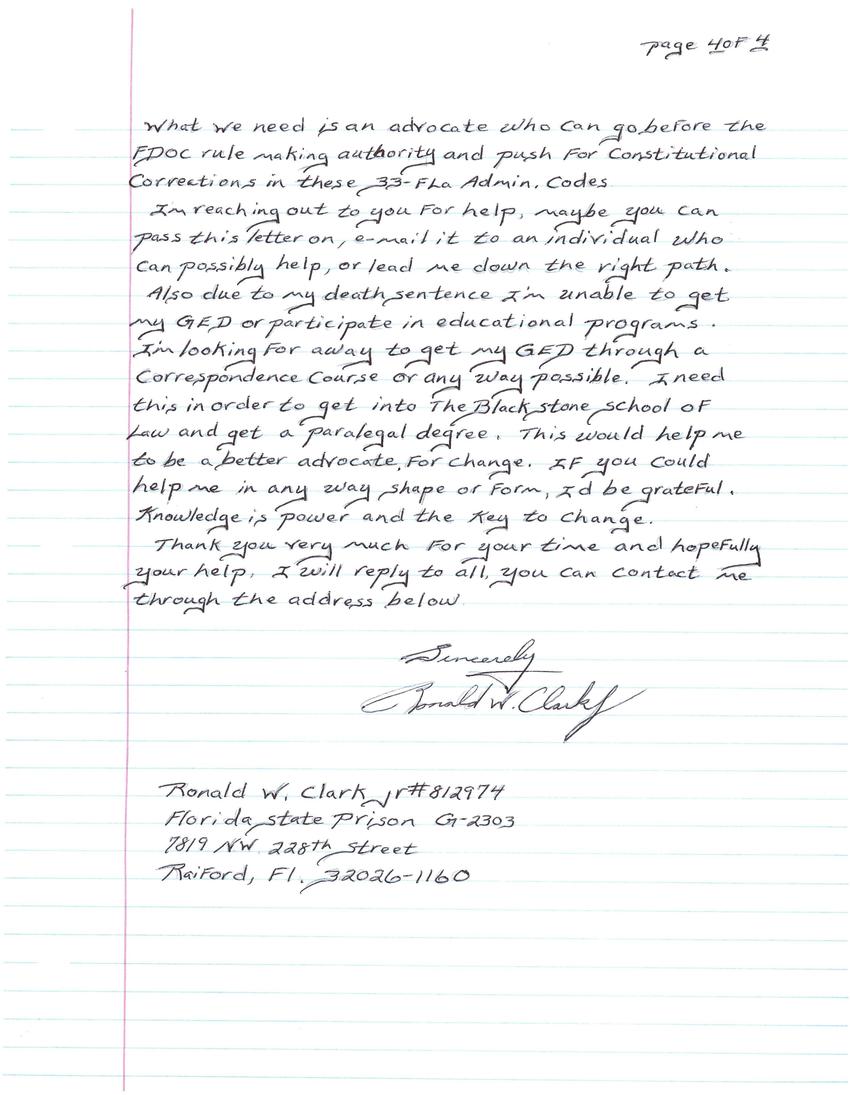 page 4 of 4
What we need is an advocate who can go before the
FDOC rule making authority and push for Constitutional
Corrections in these 33-FLa Admin. Codes
I'm reaching out to you for help, maybe you can
pass this letter on, e-mail it to an individual who
can possibly help, or lead me down the right path.
Also due to my death sentence I'm unable to get
my GED or participate in educational programs.
I'm looking for away to get my GED through a
Correspondence Course or any way possible. I need
this in order to get into The Black stone school of
Law and get a paralegal degree. This would help me
to be a better advocate, for change. If you could
help me in any way shape or form, I'd be grateful.
Knowledge is power and the Key to change.
Thank you very much for your time and hopefully
your help. I will reply to all, you can contact me
through the address below
Sincerely
Ronald W. Clark J
Ronald W. Clark jr #812974
Florida state Prison G-2303
7819 NW. 228th street
Raiford, Fl. 32026-1160